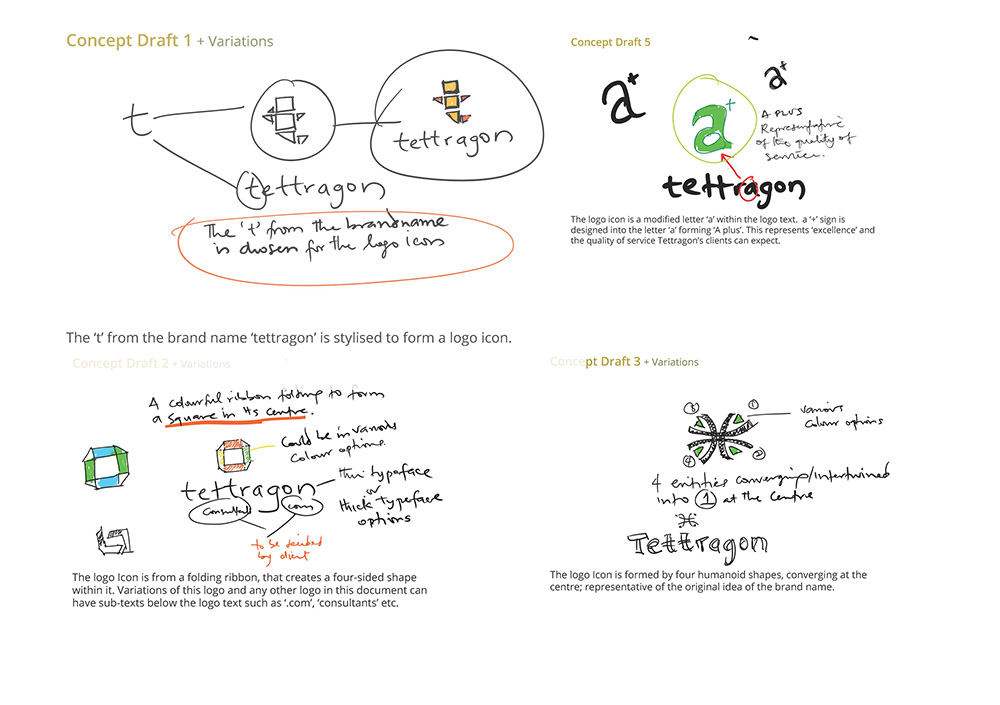 Concept Draft 1 + Variations
t
tettragon
tettragon
The 't' from the brandname
is chosen for the logo icon
The ‘t’ from the brand name ‘tettragon’ is stylised to form a logo icon.
Concept Draft 5
a+
a+
a+
A PLUS
Representative
of the quality of
service.
tettragon
The logo icon is a modified letter ‘a’ within the logo text. a ‘+’ sign is
designed into the letter ‘a’ forming ‘A plus’. This represents ‘excellence’ and
the quality of service Tettragon’s clients can expect.
Concept Draft 2 + Variations
A colourful ribbon folding to form
a square in its centre.
Could be in various
colour options.
tettragon
thin typeface
or
thick typeface
options
Consultants
.com
to be decided
by client
The logo Icon is from a folding ribbon, that creates a four-sided shape
within it. Variations of this logo and any other logo in this document can
have sub-texts below the logo text such as ‘.com’, ‘consultants’ etc.
Concept Draft 3 + Variations
3
1
4
2
various
colour options
4 entities converging/intertwined
into 1 at the centre
Tettragon
The logo Icon is formed by four humanoid shapes, converging at the
centre; representative of the original idea of the brand name.